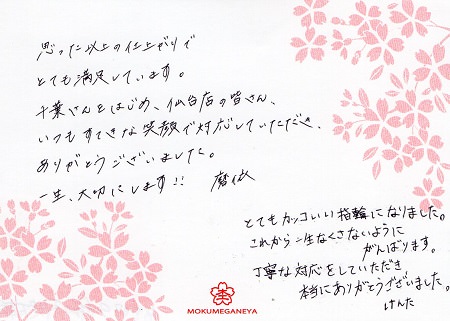 思った以上の仕上がりで
とても満足しています。
千葉さんをはじめ、仙台店の皆さん、
いつもすてきな笑顔で対応していただき、
ありがとうございました。
一生、大切にします!! 磨依
とてもカッコいい指輪になりました。
これから一生なくさないように
がんばります。
丁寧な対応をしていただき
本当にありがとうございました。
けんた
MOKUMEGANEYA